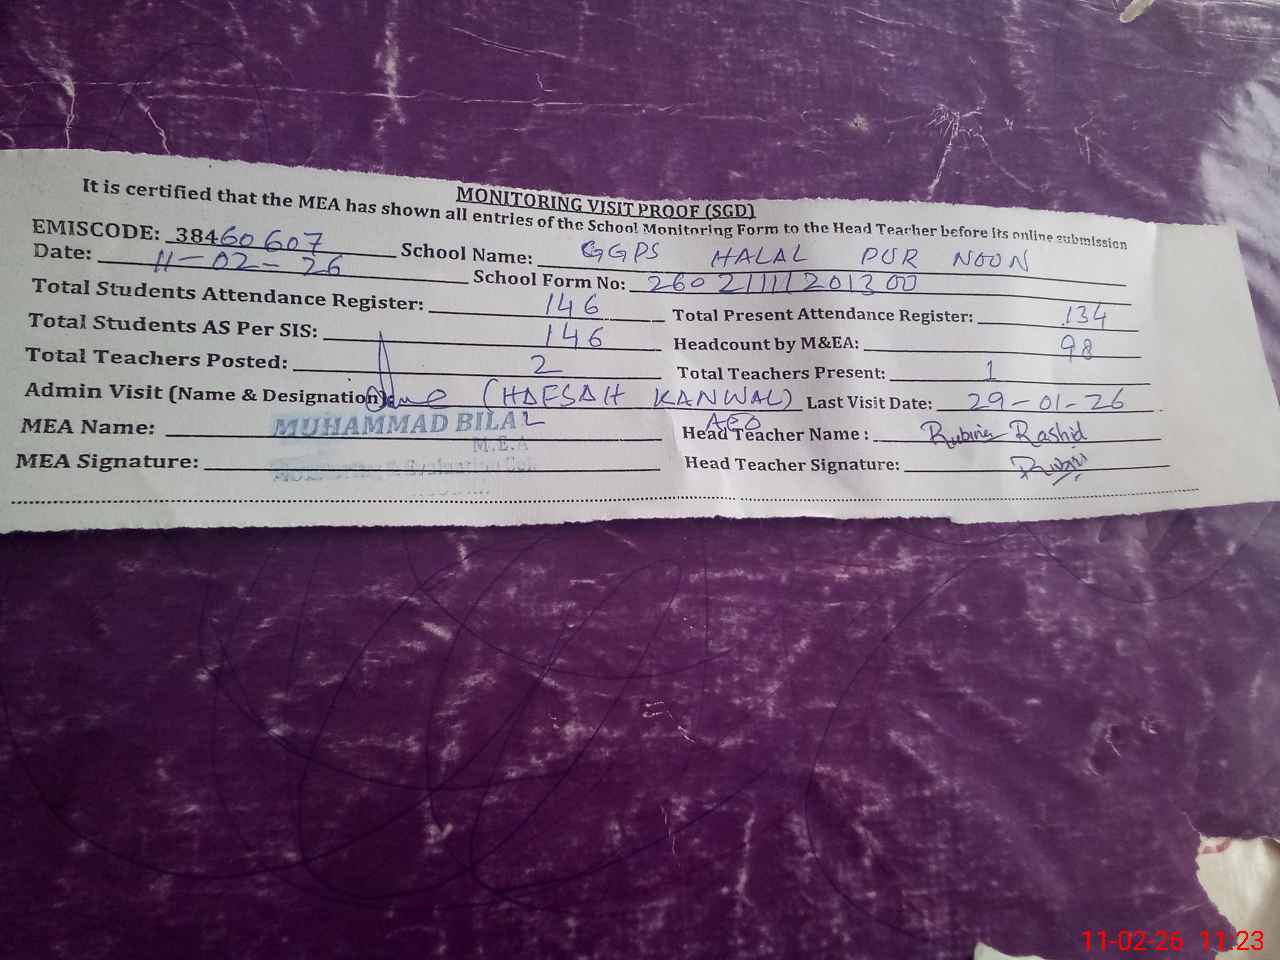 MONITORING VISIT PROOF (SGD)
It is certified that the MEA has shown all entries of the School Monitoring Form to the Head Teacher before its online submission
EMISCODE: 38460607 School Name: GGPS HALAL PUR NOON
Date: 11-02-26 School Form No: 26021111201300
Total Students Attendance Register: 146 Total Present Attendance Register: 134
Total Students AS Per SIS: 146 Headcount by M&EA: 98
Total Teachers Posted: 2 Total Teachers Present: 1
Admin Visit (Name & Designation) (HAFSAH KANWAL) AEO Last Visit Date: 29-01-26
MEA Name: MUHAMMAD BILAL Head Teacher Name: Rubina Rashid
M.E.A
MEA Signature: Monitoring & Evaluation Head Teacher Signature:
11-02-26 11:23